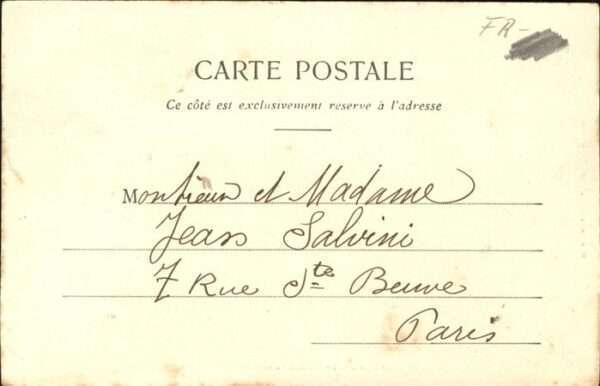 FR-
CARTE POSTALE
Ce côté est exclusivement reserve à l'adresse
Monsieur et Madame
Jean Salvini
7 Rue Ste Beuve
Paris